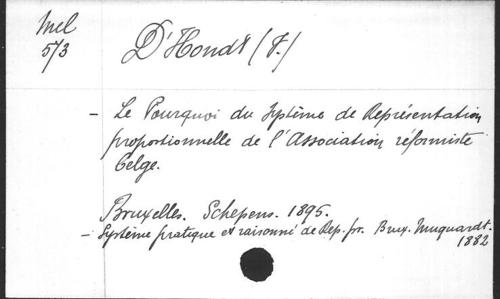 Mel
5/3
D'Hondt (V.)
- Le Pourquoi du Système de Représentation
proportionnelle de l'Association réformiste
belge.
Bruxelles. Schepens. 1895.
- Système pratique et raisonné de Rep. pr. Brux. Muquardt.
1882